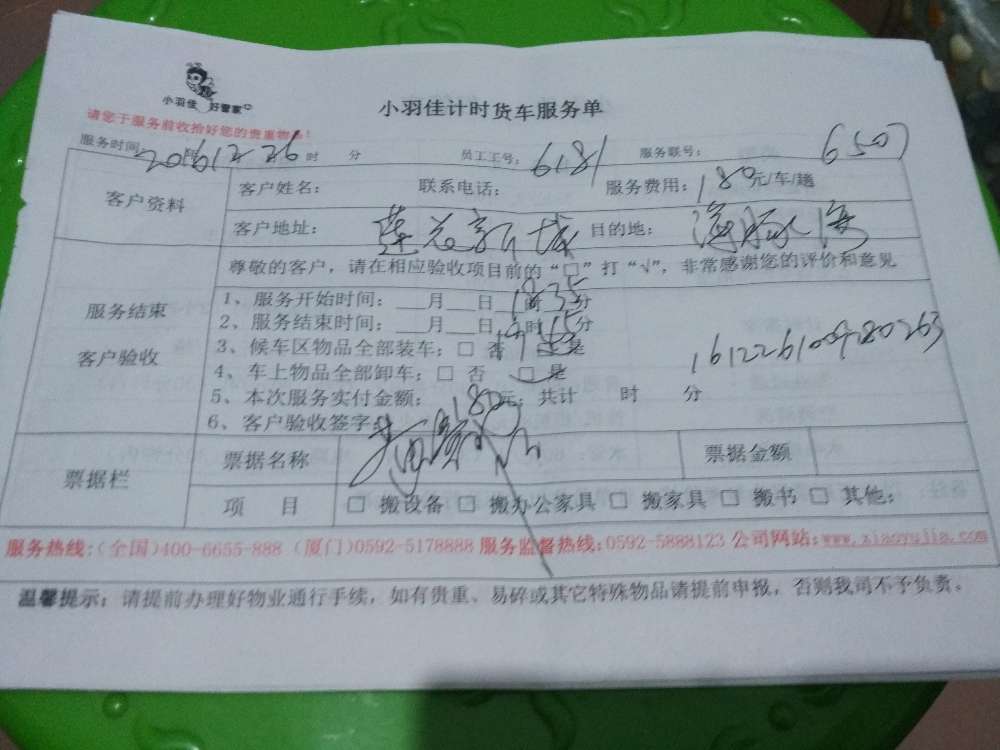 小羽佳 好管家
小羽佳计时货车服务单
请您于服务前收拾好您的贵重物品!
服务时间: 2016 12 26 时 分 员工工号: 6181 服务联号: 6507
客户资料
客户姓名: 联系电话: 服务费用: 180元/车/趟
客户地址: 莲花新城 目的地: 海豚湾
尊敬的客户，请在相应验收项目前的“□”打“√”，非常感谢您的评价和意见
服务结束
客户验收
1、服务开始时间: 月 日 18时35分
2、服务结束时间: 月 日 19时15分
3、候车区物品全部装车: □ 否 □ 是
4、车上物品全部卸车: □ 否 □ 是
161226100980263
5、本次服务实付金额: 180元; 共计 时 分
6、客户验收签字:
票据栏
票据名称 票据金额
项 目 □ 搬设备 □ 搬办公家具 □ 搬家具 □ 搬书 □ 其他:
服务热线:(全国)400-6655-888 (厦门)0592-5178888 服务监督热线:0592-5888123 公司网站:www.xiaoyujia.com
温馨提示: 请提前办理好物业通行手续，如有贵重、易碎或其它特殊物品请提前申报，否则我司不予负责。